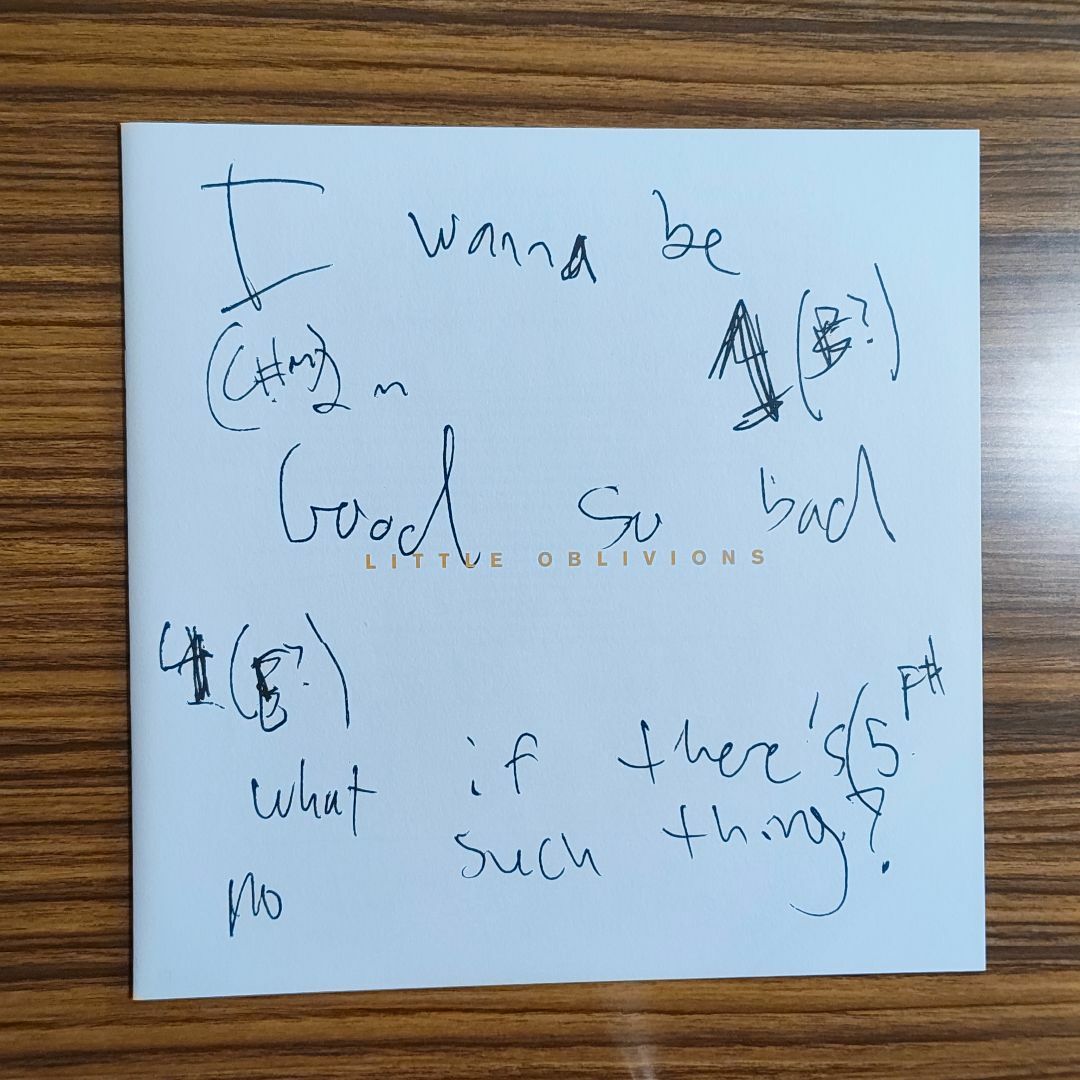 I wanna be
(C#m) 2 m 1 (E?)
Good so bad
LITTLE OBLIVIONS
4 (B?)
what if there's (5 F#
no such thing?